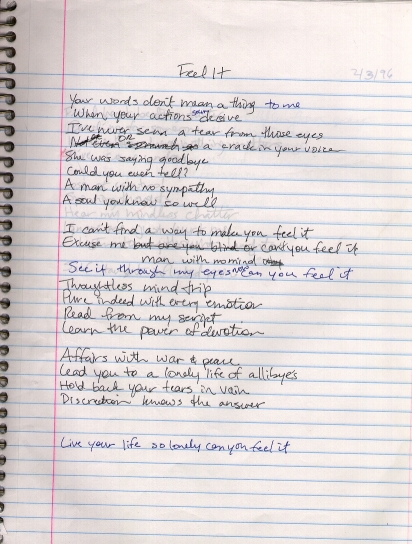 Feel It
2/3/96
Your words don't mean a thing to me
When, your actions only decive
I've never seen a tear from those eyes
Not even or so much as a crack in your voice
She was saying goodbye
Could you even tell?
A man with no sympathy
A soul you know so well
I can't find a way to make you feel it
Excuse me but are you blind or can't you feel it
man with no mind
See it through my eyes now can you feel it
Thoughtless mind trip
Pure indeed with every emotion
Read from my script
Learn the power of devotion
Affairs with war & peace
Lead you to a lonely life of allibye's
Hold back your tears in vain
Discretion knows the answer
Live your life so lonely can you feel it